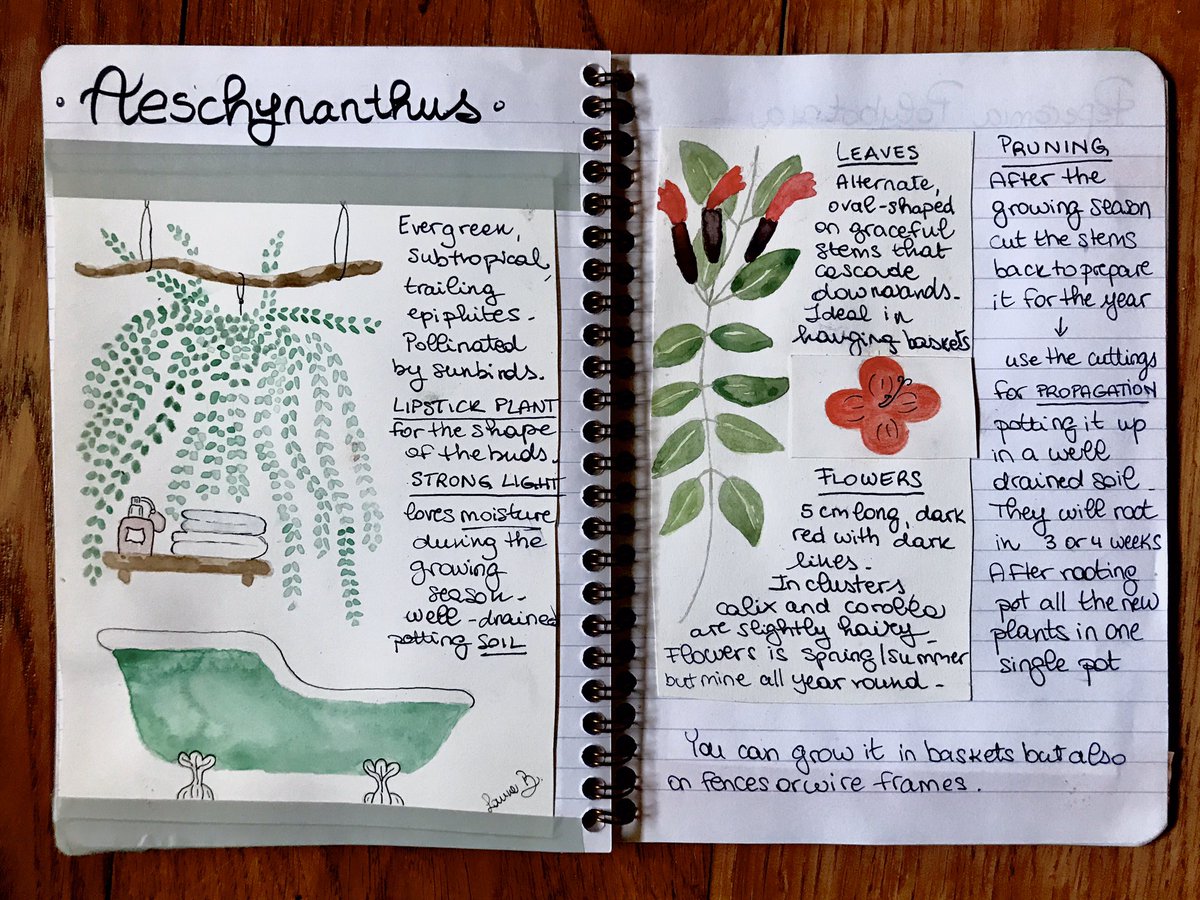 . Aeschynanthus .
Evergreen,
subtropical,
trailing
epiphites -
Pollinated
by sunbirds.
LIPSTICK PLANT
for the shape
of the buds.
STRONG LIGHT
loves moisture
during the
growing
season -
well-drained
potting SOIL
Laura B.
LEAVES
Alternate,
oval-shaped
on graceful
stems that
cascade
downwards -
Ideal in
hanging baskets
FLOWERS
5 cm long, dark
red with dark
lines -
In clusters
calix and corolla
are slightly hairy -
Flowers is spring/summer
but mine all year round -
PRUNING
After the
growing season
cut the stems
back to prepare
it for the year
↓
use the cuttings
for PROPAGATION
potting it up
in a well
drained soil -
They will root
in 3 or 4 weeks
After rooting
pot all the new
plants in one
single pot
You can grow it in baskets but also
on fences or wire frames.